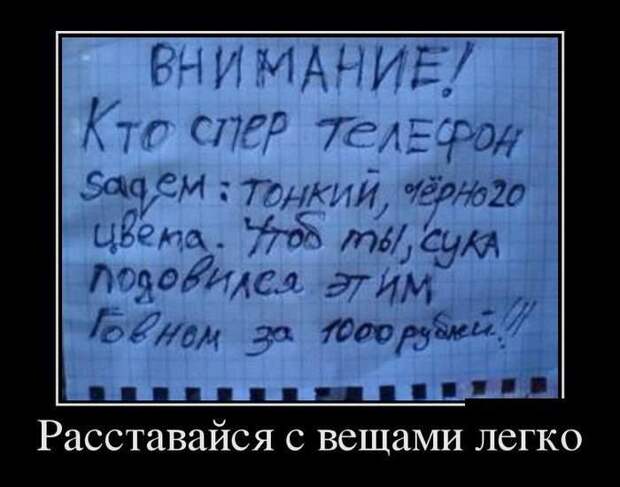 ВНИМАНИЕ!
Кто спер телефон
sagem: тонкий, чёрного
цвета. Чтоб ты, сука
подовился этим
Говном за 1000 рублей!!!
Расставайся с вещами легко